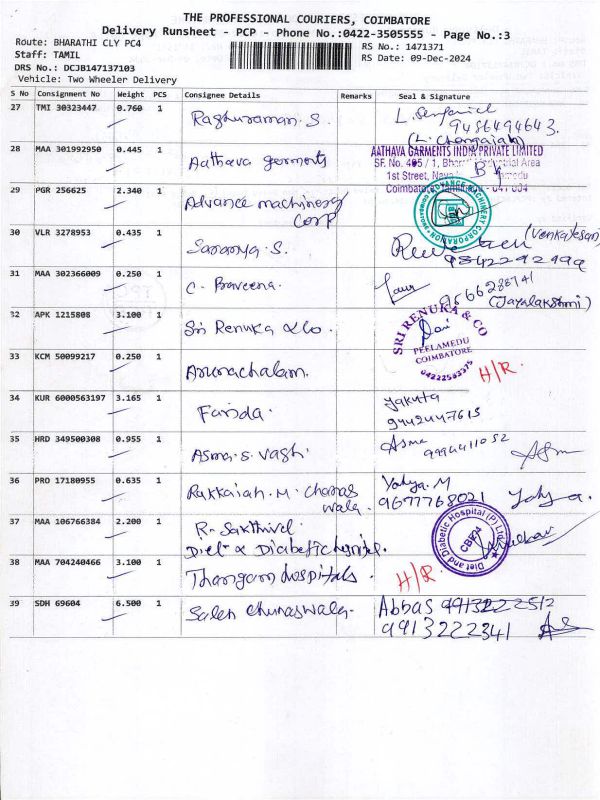 THE PROFESSIONAL COURIERS, COIMBATORE
Delivery Runsheet - PCP - Phone No.:0422-3505555 - Page No.:3
Route: BHARATHI CLY PC4
RS No.: 1471371
Staff: TAMIL
RS Date: 09-Dec-2024
DRS No.: DCJB147137103
Vehicle: Two Wheeler Delivery
S No Consignment No Weight PCS Consignee Details Remarks Seal & Signature
27 TMI 30323447 0.760 1 Raghuraman. S.
9486494643.
28 MAA 301992950 0.445 1 Aathava garments
AATHAVA GARMENTS INDIA PRIVATE LIMITED
SF. No. 405 / 1, Industrial Area
1st Street,
Coimbatore, Tamilnadu - 641 004
29 PGR 256625 2.340 1 Advance machinery
Corp
ADVANCE MACHINERY CORPORATION
COIMBATORE
30 VLR 3278953 0.435 1 Saranya. S.
(Venkatesan)
9842292999
31 MAA 302366009 0.250 1 C. Praveena.
9566628741
(Jayalakshmi)
32 APK 1215808 3.100 1 Sri Renuka & Co.
SRI RENUKA & CO
PEELAMEDU
COIMBATORE
04222593375
33 KCM 50099217 0.250 1 Arunachalam.
H/R.
34 KUR 6000563197 3.165 1 Farida.
yakuta
9442447615
35 HRD 349500308 0.955 1 Asma. S. vagh.
Asma
9994411052
36 PRO 17180955 0.635 1 Rukkaiah. M. Chunas
wala.
Yahya. M
9677768021 Yahya.
37 MAA 106766384 2.200 1 R. Sakthivel.
Diet & Diabetic hospital.
Diet and Diabetic Hospital (P) Ltd.
CBE-4
38 MAA 704240466 3.100 1 Thangam hospitals.
H/R
39 SDH 69604 6.500 1 Saleh Chunaswala.
Abbas 9913222512
9913222341